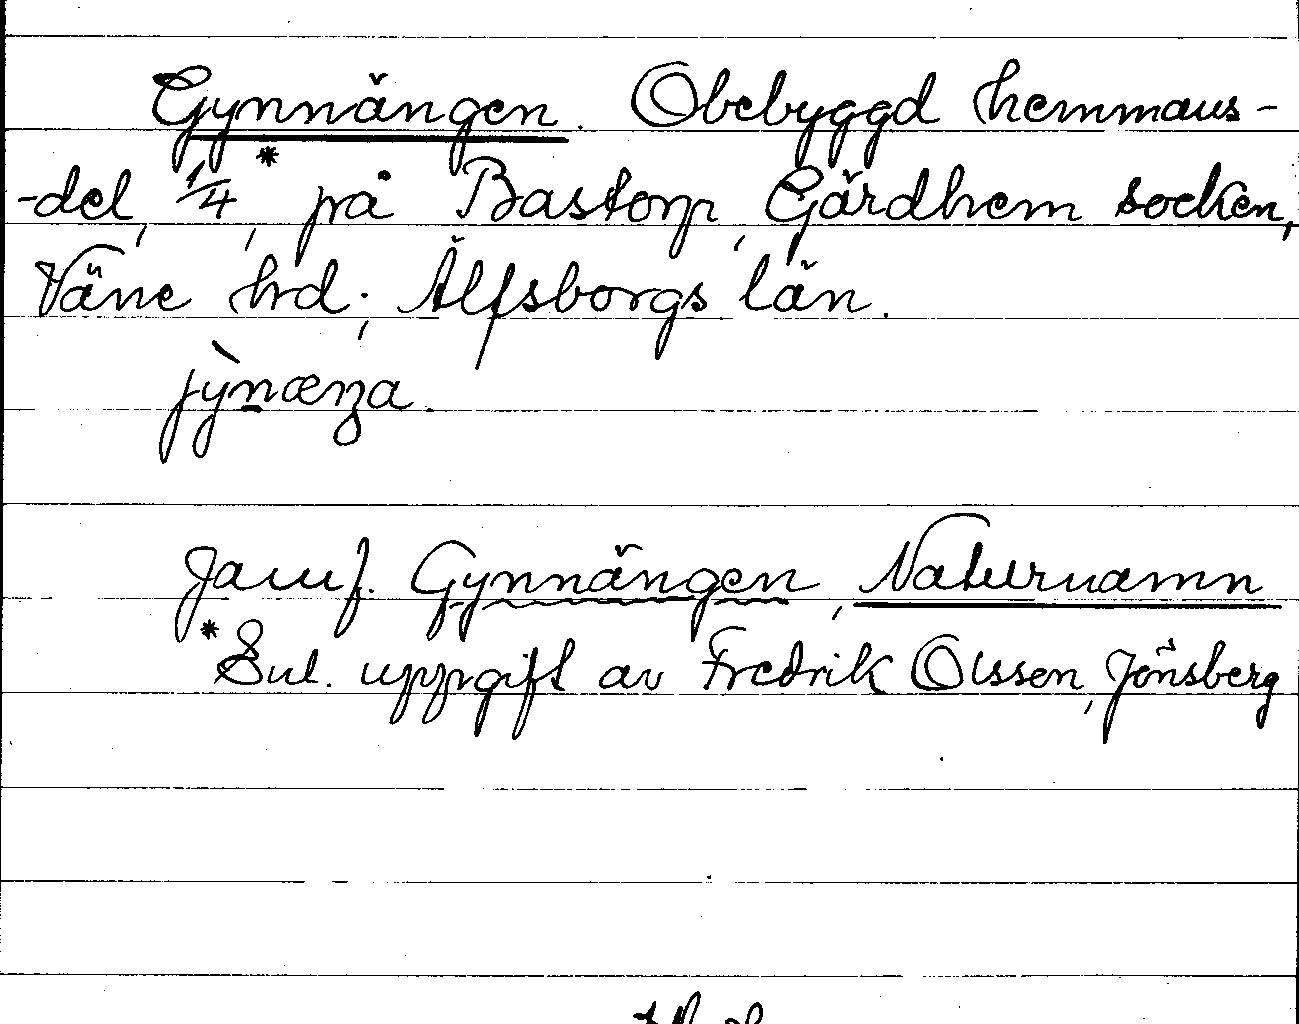 Gynnängen. Obebyggd hemmans-
-del, 1/4*, på Bastorp, Gärdhem socken,
Väne hrd., Älfsborgs län.
jỳnæŋa.
Jämf. Gynnängen, Naturnamn
*Enl. uppgift av Fredrik Olssen, Jönsberg